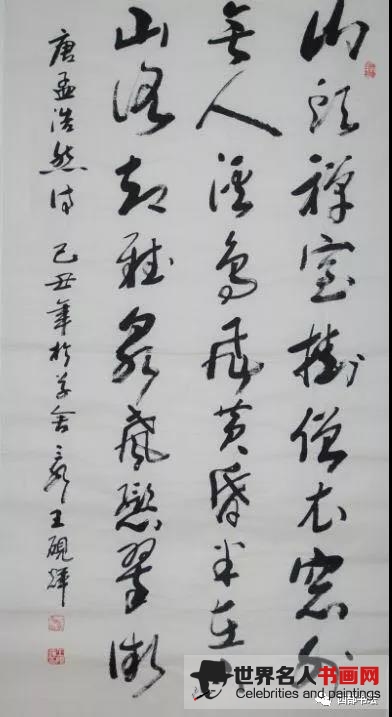 山頭禅室掛僧衣窓外
無人溪鳥飛黄昏半在下
山路却聽泉聲戀翠微
唐孟浩然诗 己丑年於草舍 王硯輝
世界名人书画网
Celebrities and paintings
西部书法